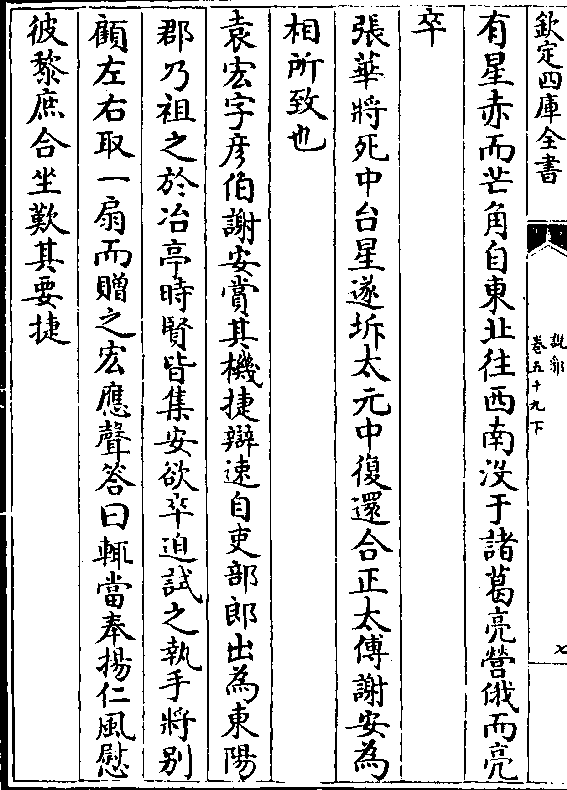 欽定四庫全書
說郛
卷五十九下
七
有星赤而芒角自東北往西南没于諸葛亮營俄而亮
卒
張華將死中台星遂坼太元中復還合正太傅謝安為
相所致也
袁宏字彦伯謝安賞其機捷辯速自吏部郎出為東陽
郡乃祖之於冶亭時賢皆集安欲卒迫試之執手將别
顧左右取一扇而贈之宏應聲答曰輒當奉揚仁風慰
彼黎庶合坐歎其要捷